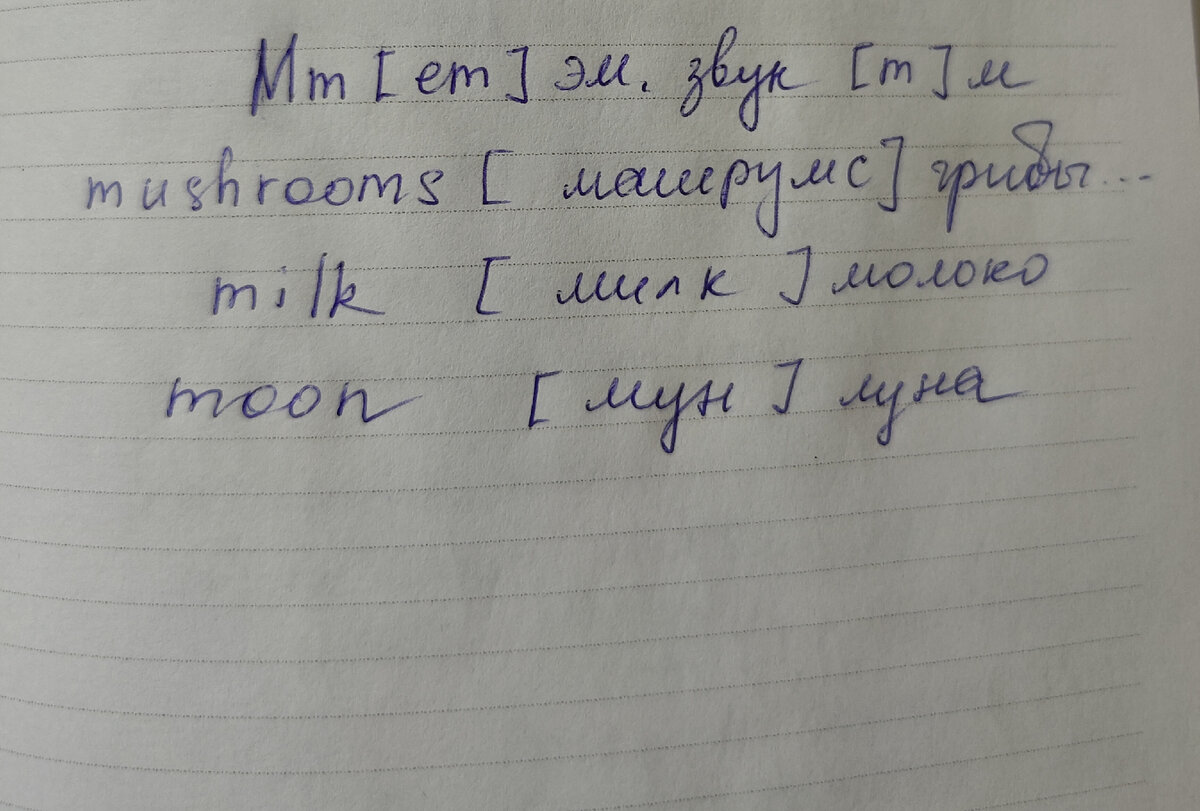 Mm [em] эм. звук [m] м
mushrooms [машрумс] грибы...
milk [милк] молоко
moon [мун] луна